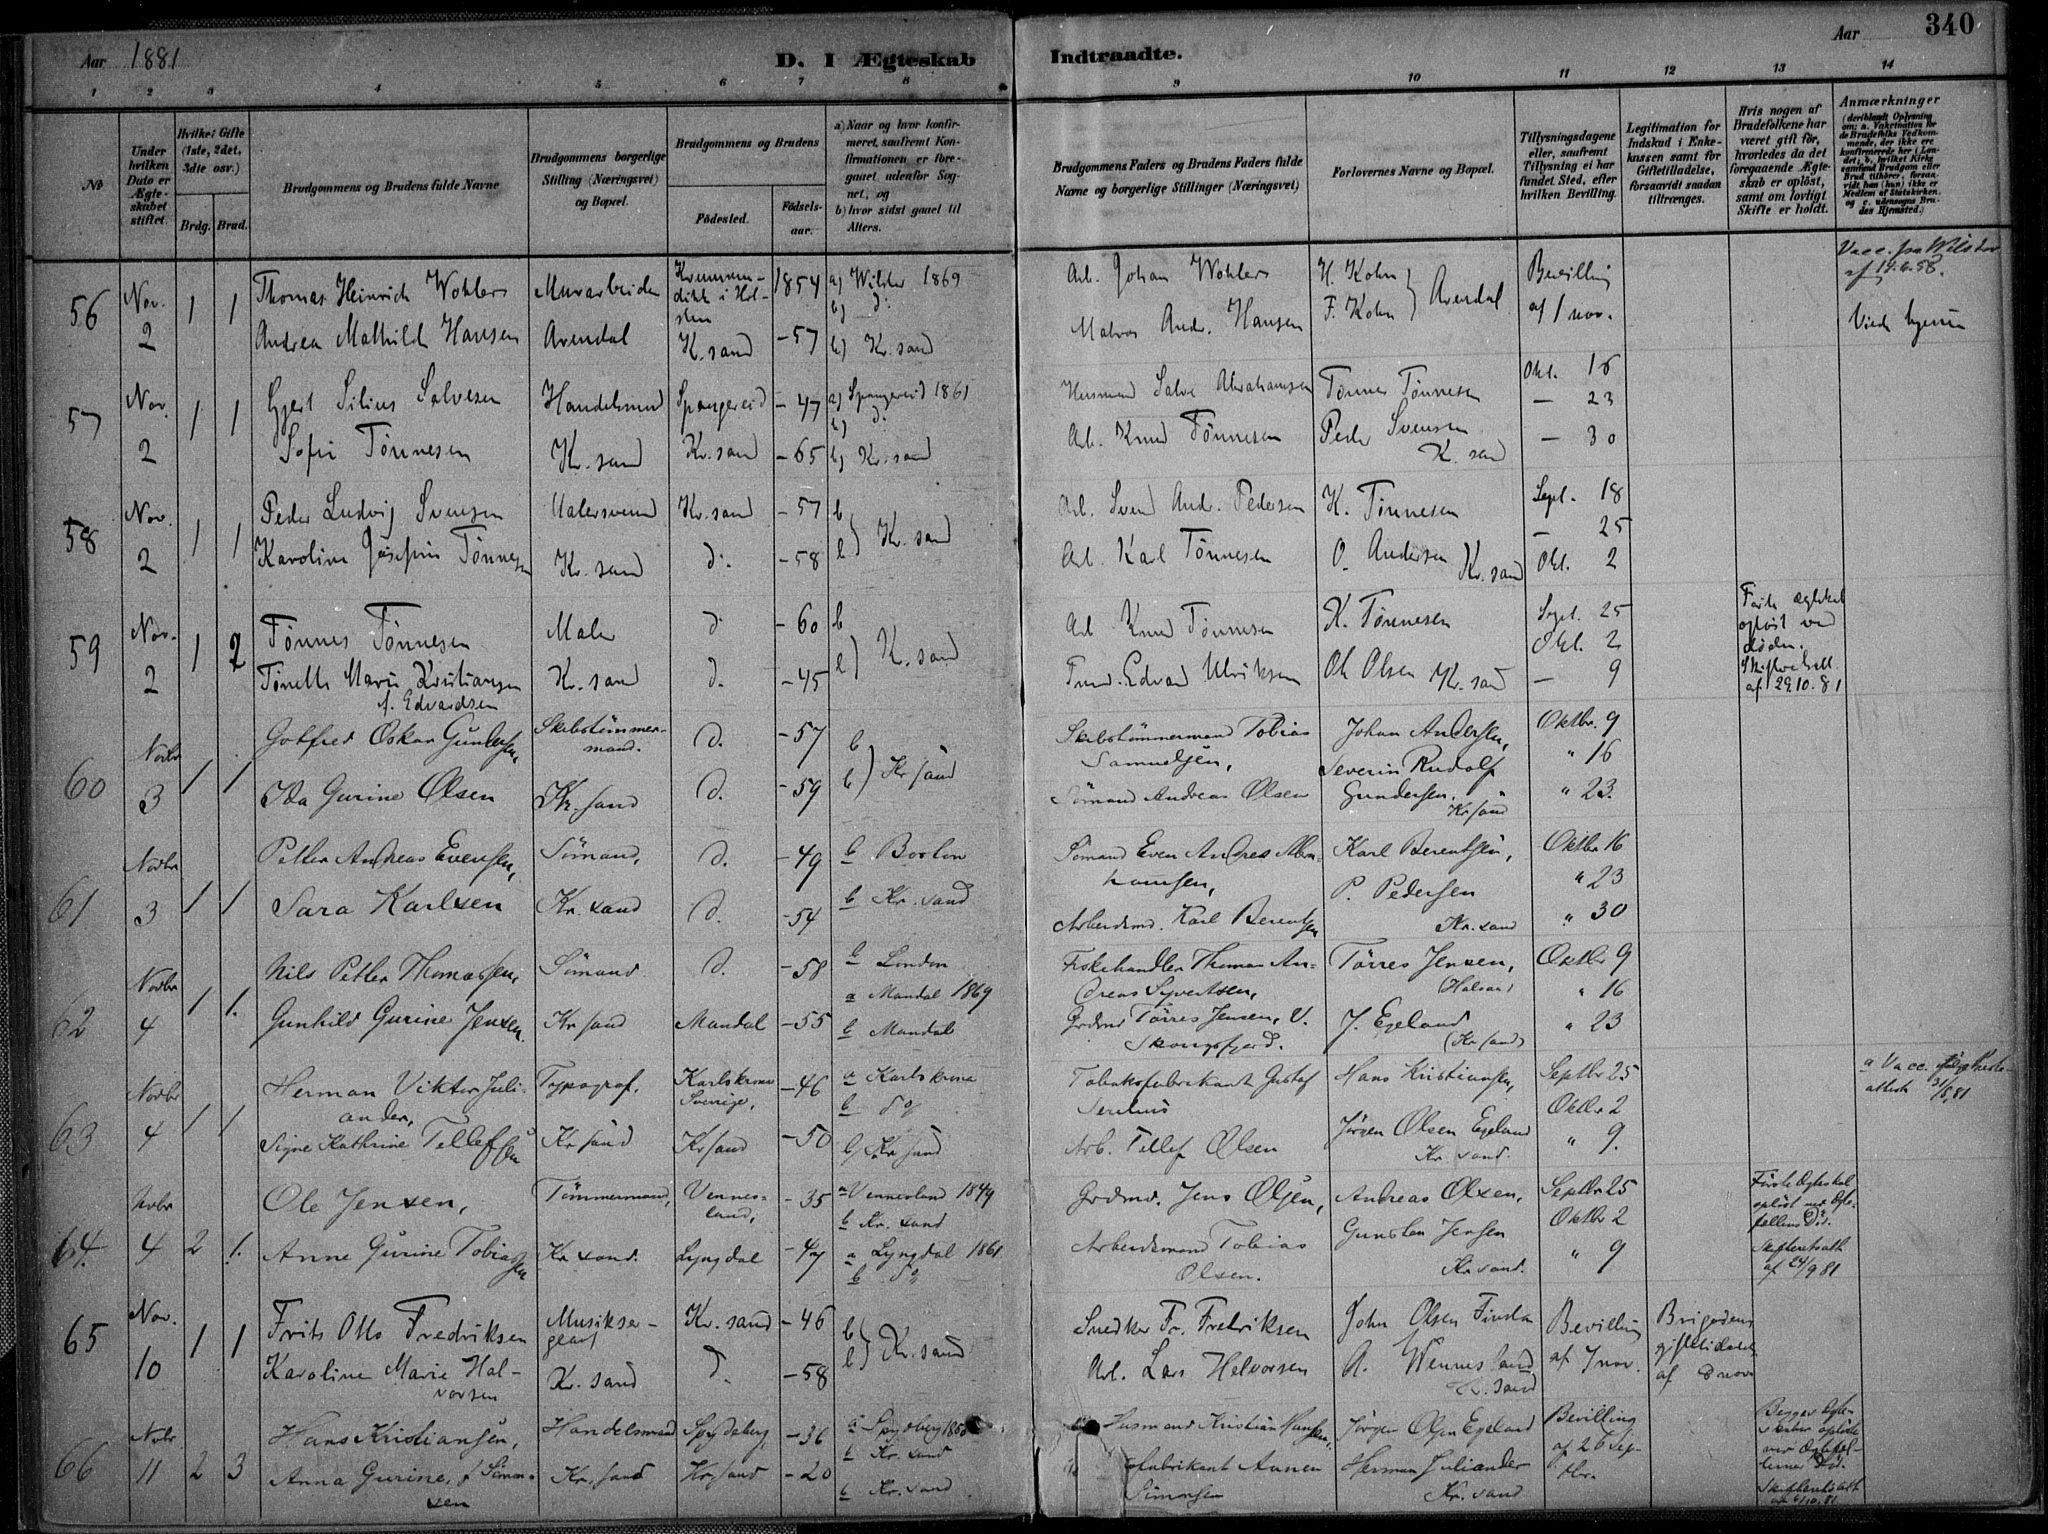 Aar 1881
D. I Ægteskab Indtraadte.
Aar
340
1 2 3 4 5 6 7 8 9 10 11 12 13 14
No
Under hvilken Dato er Ægteskabet stiftet.
Hvilket Gifte (1ste, 2det, 3die osv.)
Brdg. Brud.
Brudgommens og Brudens fulde Navne
Brudgommens borgerlige Stilling (Næringsvei) og Bopæl.
Brudgommens og Brudens
Födested. Födselsaar.
a) Naar og hvor konfirmeret, saafremt Konfirmationen er foregaaet udenfor Sognet, og
b) hvor sidst gaaet til Alters.
Brudgommens Faders og Brudens Faders fulde Navne og borgerlige Stillinger (Næringsvei)
Forlovernes Navne og Bopæl.
Tillysningsdagene eller, saafremt Tillysning ei har fundet Sted, efter hvilken Bevilling.
Legitimation for Indskud i Enkekassen samt for Giftetilladelse, forsaavidt saadan tiltrænges.
Hvis nogen af Brudefolkene har været gift för, hvorledes da det foregaaende Ægteskab er oplöst, samt om lovligt Skifte er holdt.
Anmærkninger
56 Nov. 2 1 1
Thomas Heinrich Wohlers Murarbeider 1854 a) Wilster 1869 b) d:
Arb. Johan Wohlers H. Kohn Bevilling
Andrea Mathilde Hansen Arendal K. sand -57 b) Kr. sand
Matros Andr. Hansen F. Kohn Arendal af 1 nov.
Vacc. fra Wilster af 19.6.58.
57 Nov. 2 1 1
Gjert Silius Salvesen Handelsmand Spangereid -47 a) Spangereid 1861 b) d:
Husmand Salve Abrahamsen Tönnes Tönnesen Okt. 16 - 23
Sofie Tönnesen Kr. sand Kr. sand -65 b) Kr. sand
Arb. Knud Tönnesen Peder Svensen K. sand - 30
58 Nov. 2 1 1
Peder Ludvig Svensen Malersvend Kr. sand -57 b
Arb. Svend Andr. Pedersen K. Tönnesen Sept. 18 - 25
Karoline Josefine Tönnesen Kr. sand d: -58 b) Kr. sand
Arb. Karl Tönnesen O. Andersen Kr. sand Okt. 2
59 Nov. 2 1 2
Tönnes Tönnesen Maler d: -60 b
Arb Knud Tönnesen K. Tönnesen Sept. 25 Okt. 2
Tönette Marie Kristiansen f. Edvardsen Kr. sand d. -45 b) K. sand
Edvard Ulriksen Ole Olsen Kr. sand - 9
Förste ægteskab oplöst ved döden. Skifteatt. af 29.10.81
60 Novbr 3 1 1
Gotfred Oskar Gundersen, Skibstömmermand. d. -57 b
Skibstömmermand Tobias Samuelsen, Johan Andersen, Oktbr. 9 " 16
Ida Gurine Olsen Kr. sand d. -59 b) Kr sand
Sömand Andreas Olsen Severin Rudolf Gundersen. Kr sand " 23.
61 Novbr 3 1 1
Petter Andreas Evensen, Sömand, d. -49 b Boston
Sömand Even Andreas Abrahamsen, Karl Berentsen, Oktbr 16 " 23
Sara Karlsen Kr. sand d. -54 b Kr. sand
Arbeidsmd. Karl Berentsen P. Pedersen Kr. sand " 30
62 Novbr 4 1 1.
Nils Petter Thomassen, Sömand d. -58 b London
Fiskehandler Thomas Andreas Syvertsen, Törres Jensen, (Halsaa) Oktbr 9 " 16
Gunhild Gurine Jensen. Kr sand Mandal -55 a Mandal 1869 b Mandal
Grdmd Törres Jensen, V. Skongsfjord. J. Egeland (Kr sand) " 23
63 Novbr 4 1 1
Herman Viktor Juliander, Typograf. Karlskrona Sverige, -46 a Karlskrona b do
Tobaksfabrikant Gustaf Hans Kristiansen, Septbr 25 Oktbr 2
Signe Kathrine Tellefsen Kr sand Kr sand -50 b Kr sand
Arb. Tellef Olsen Jörgen Olsen Egeland Kr. sand. " 9.
64. Novbr 4 2 1.
Ole Jensen, Tömmermand, Vennesland, -35 a Vennesland 1849 b Kr. sand
Grdmd. Jens Olsen, Andreas Olsen, Septbr 25 Oktbr 2
Anne Gurine Tobiassen Kr. sand. Lyngdal -47 a Lyngdal 1861 b do
Arbeidsmand Tobias Olsen. Gunsten Jensen Kr. sand. " 9
Förste Ægteskab oplöst ved Ægtefællens Död. Skifteratt af 24/9 81
65 Nov. 10 1 1
Frits Otto Fredriksen Musiksergeant Kr. sand -46 b
Snedker Fr. Fredriksen John Olsen Bevilling
Karoline Marie Halvorsen Kr. sand d. -58 b) Kr. sand
Arb. Lars Halvorsen A. Wennesland K. sand af 7 nov.
Brigadens giftetilladelse af 8 nov
66 Novbr 11 2 3
Hans Kristiansen, Handelsmand Spydeberg, -36 a Spydberg b Kr. sand
Husmand Kristian Hansen, Jörgen Olsen Egeland Bevilling
Anna Gurine, f Simonsen Kr. sand Kr. sand -20 b Kr. sand
Fabrikant Aanen Simonsen Herman Juliander Kr. sand af 26 Septbr.
Begges Ægteskaber oplöste ved Ægtefællernes Död. Skifteratt